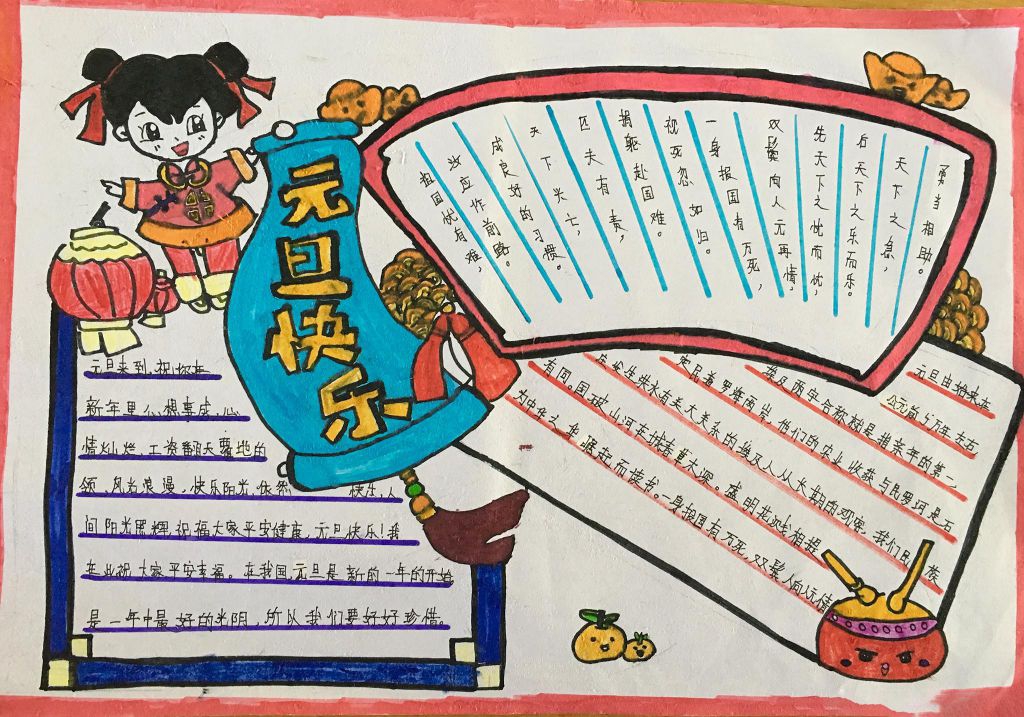 元旦快乐
勇当相助。
天下之急，
后天下之乐而乐。
先天下之忧而忧，
双鬓向人元再情，
一身报国有万死，
视死忽如归。
捐躯赴国难。
匹夫有责，
天下兴亡，
成良好的习惯。
汝应作前路。
祖国忧有难，
元旦来到，祝你在
新年里心想事成，心
情灿烂，工资翻天覆地的
领，风光浪漫，快乐阳光，依然 快乐，人
间阳光照耀，祝福大家平安健康，元旦快乐！我
在此祝大家平安幸福。在我国，元旦是新的一年的开始
是一年中最好的光阴，所以我们要好好珍惜。
元旦由始来在
公元前5万年左右
埃及两字合称就是指亲年的第一
定民着罗辉两岸，他们的农业收获与民罗河是石
左发生洪水有关大关系的，埃及人从大期的观察，我们民族
有同。国破山河在城春草木深。盛明花溅相提
为中华之 崛起而读书。一身报国有万死，双鬓人向人元情